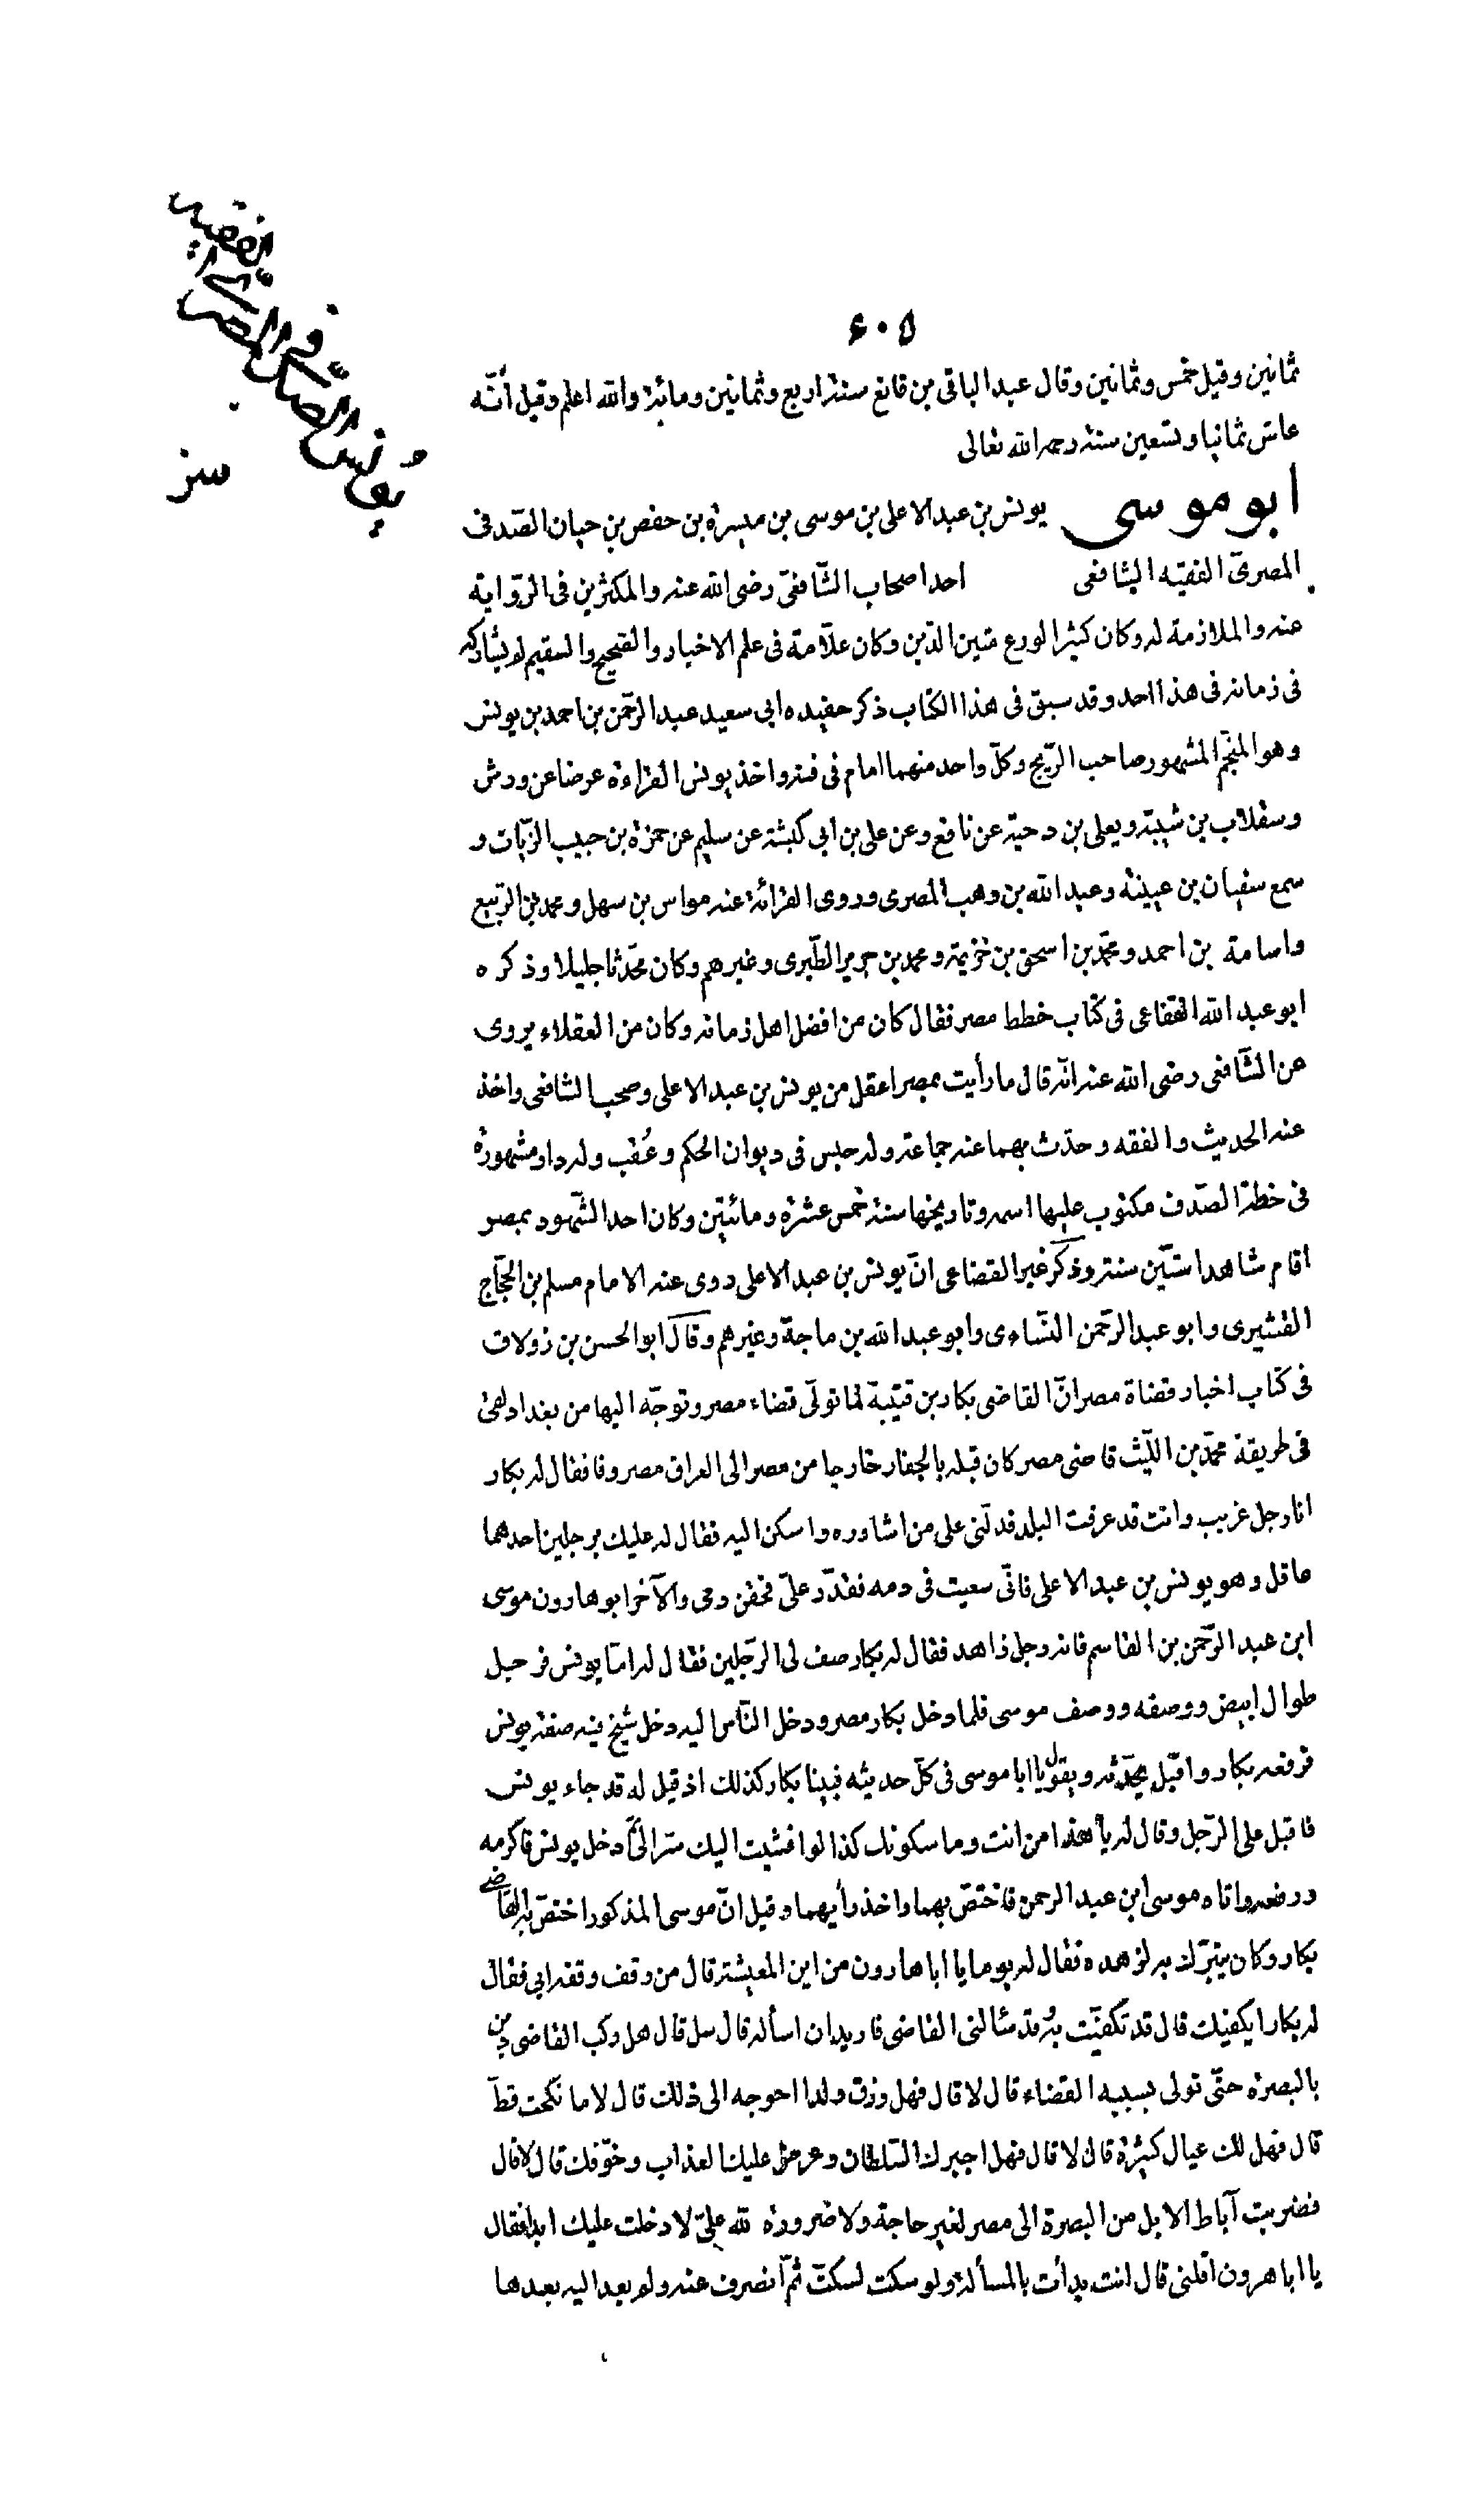 ٤٠٥
ثمانين وقيل خمس وثمانين وقال عبد الباقى بن قانع سنة اربع وثمانين ومائة والله اعلم وقيل أنّه
عاش ثمانيا وتسعين سنة رحمه الله تعالى
ابو موسى يونس بن عبد الاعلى بن موسى بن ميسرة بن حفص بن حيان الصّدفى
المصرىّ الفقيه الشافعى احد اصحاب الشّافعىّ رضى الله عنه والمكثرين فى الرّواية
عنه والملازمة له وكان كثير الورع متين الدّين وكان علّامة فى علم الاخبار والصّحيح والسقيم لم يشاركه
فى زمانه فى هذا احد وقد سبق فى هذا الكتاب ذكر حفيده ابى سعيد عبد الرّحمن بن احمد بن يونس
وهو المنجّم المشهور صاحب الزّيج وكلّ واحد منهما امام فى فنه واخذ يونس القراءة عرضا عن ورش
وسقلاب بن شيبة ويعلى بن دحية عن نافع وعن على بن ابى كبشة عن سليم عن حمزة بن حبيب الزّيات و
سمع سفيان بن عيينة وعبد الله بن وهب المصرى وروى القرائة عنه مواس بن سهل ومحمد بن الرّبيع
واسامة بن احمد ومحمّد بن اسحق بن خزيمة ومحمد بن جرير الطّبرى وغيرهم وكان محدّثا جليلا وذكره
ابو عبد الله القضاعى فى كتاب خطط مصر فقال كان من افضل اهل زمانه وكان من العقلاء يروى
عن الشّافعى رضى الله عنه انّه قال ما رأيت بمصر اعقل من يونس بن عبد الاعلى وصحب الشافعى واخذ
عنه الحديث والفقه وحدّث بهما عنه جماعة وله حبس فى ديوان الحكم وعُقب وله دار مشهورة
فى خطة الصّدف مكتوب عليها اسمه وتاريخها سنة خمس عشرة ومائتين وكان احد الشّهود بمصر
اقام شاهدا ستّين سنة وذكر غير القضاعى انّ يونس بن عبد الاعلى روى عنه الامام مسلم بن الحجّاج
القشيرى وابو عبد الرّحمن النّساءى وابو عبد الله بن ماجة وغيرهم وقال ابو الحسن بن زولاق
فى كتاب اخبار قضاة مصر انّ القاضى بكار بن قتيبة لما تولّى قضاء مصر وتوجّه اليها من بغداد لقى
فى طريقه محمّد بن اللّيث قاضى مصر كان قبله بالجفار خارجا من مصر الى العراق مصروفا فقال له بكار
انا رجل غريب وانت قد عرفت البلد فدلّنى على من اشاوره واسكن اليه فقال له عليك برجلين احدهما
عاقل وهو يونس بن عبد الاعلى فانّى سعيت فى دمه فقدّر علىّ فحقن دمى والآخر ابو هارون موسى
ابن عبد الرّحمن بن القاسم فانه رجل زاهد فقال له بكار صف لى الرّجلين فقال له امّا يونس فرجل
طوال ابيض ووصفه ووصف موسى فلما دخل بكار مصر ودخل النّاس اليه دخل شيخ فيه صفة يونس
فرفعه بكار واقبل يحدّثه ويقول يا ابا موسى فى كلّ حديثه فبينا بكار كذلك اذ قيل له قد جاء يونس
فاقبل على الرّجل وقال له يا هذا من انت وما سكوتك كذا لو افشيت اليك سرّا لى ثمّ دخل يونس فاكرمه
ورفعه واتاه موسى ابن عبد الرحمن فاختصّ بهما واخذ رأيهما وقيل انّ موسى المذكور اختصّ به القاضى
بكار وكان يتبرّك به لزهده فقال له يوما يا ابا هارون من اين المعيشة قال من وقف وقفه ابى فقال
له بكار ايكفيك قال قد تكفيّت به وقد سألنى القاضى فاريد ان اسأله قال سل قال هل ركب القاضى دين
بالبصرة حتّى تولى بسببه القضاء قال لا قال فهل رزق ولدا احوجه الى ذلك قال لا ما نكحت قطّ
قال فهل لك عيال كثيرة قال لا قال فهل اجبرك السّلطان وعرض عليك العذاب وخوّفك قال لا قال
فضربت آباط الابل من البصرة الى مصر لغير حاجة ولا ضرورة لله علىّ لا دخلت عليك ابدا فقال
يا ابا هرون اقلنى قال انت بدأت بالمسألة ولو سكت لسكتّ ثمّ انصرف عنه ولم يعد اليه بعدها
يُونُس الصّدفى المصرىّ الفقيه